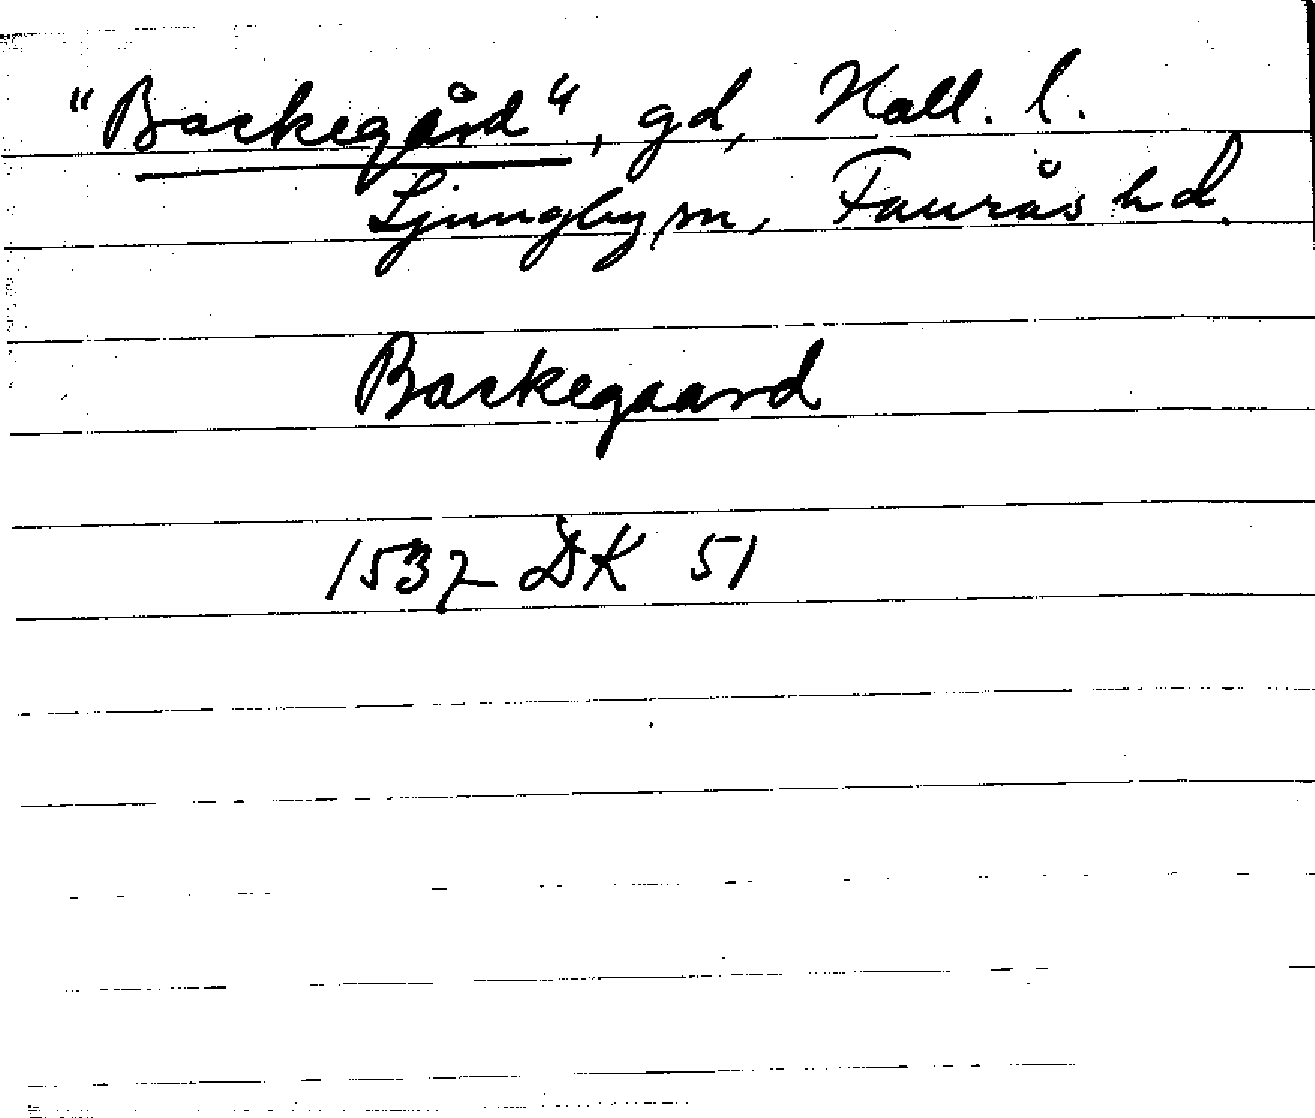 "Backegård", gd, Hall. l.
Ljungby sn, Faurås hd.
Backegaard
1537 DK 51